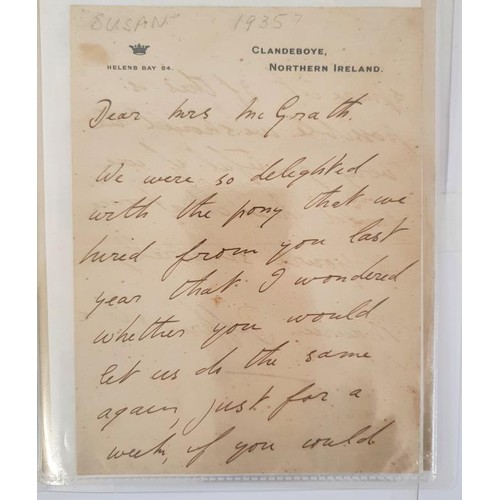 "SUSAN" 1935?
HELENS BAY 24.
CLANDEBOYE,
NORTHERN IRELAND.
Dear Mrs McGrath.
We were so delighted
with the pony that we
hired from you last
year that I wondered
whether you would
let us do the same
again, just for a
week, if you could